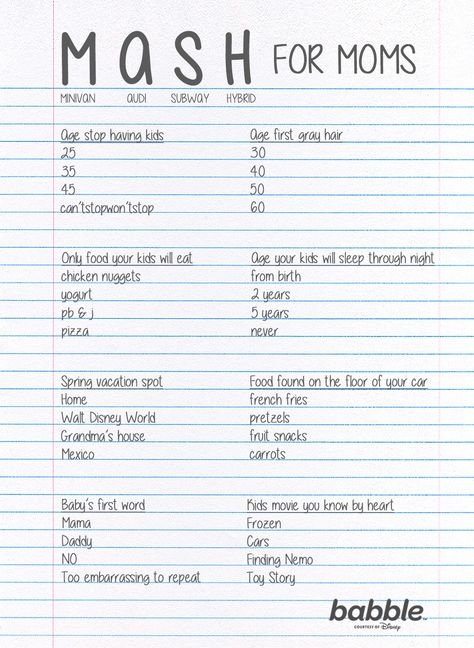 MaSH FOR MOMS
MINIVAN AUDI SUBWAY HYBRID
Age stop having kids
25
35
45
can'tstopwon'tstop
Age first gray hair
30
40
50
60
Only food your kids will eat
chicken nuggets
yogurt
pb & j
pizza
Age your kids will sleep through night
from birth
2 years
5 years
never
Spring vacation spot
Home
Walt Disney World
Grandma's house
Mexico
Food found on the floor of your car
french fries
pretzels
fruit snacks
carrots
Baby's first word
Mama
Daddy
NO
Too embarrassing to repeat
Kids movie you know by heart
Frozen
Cars
Finding Nemo
Toy Story
babble™
COURTESY OF Disney